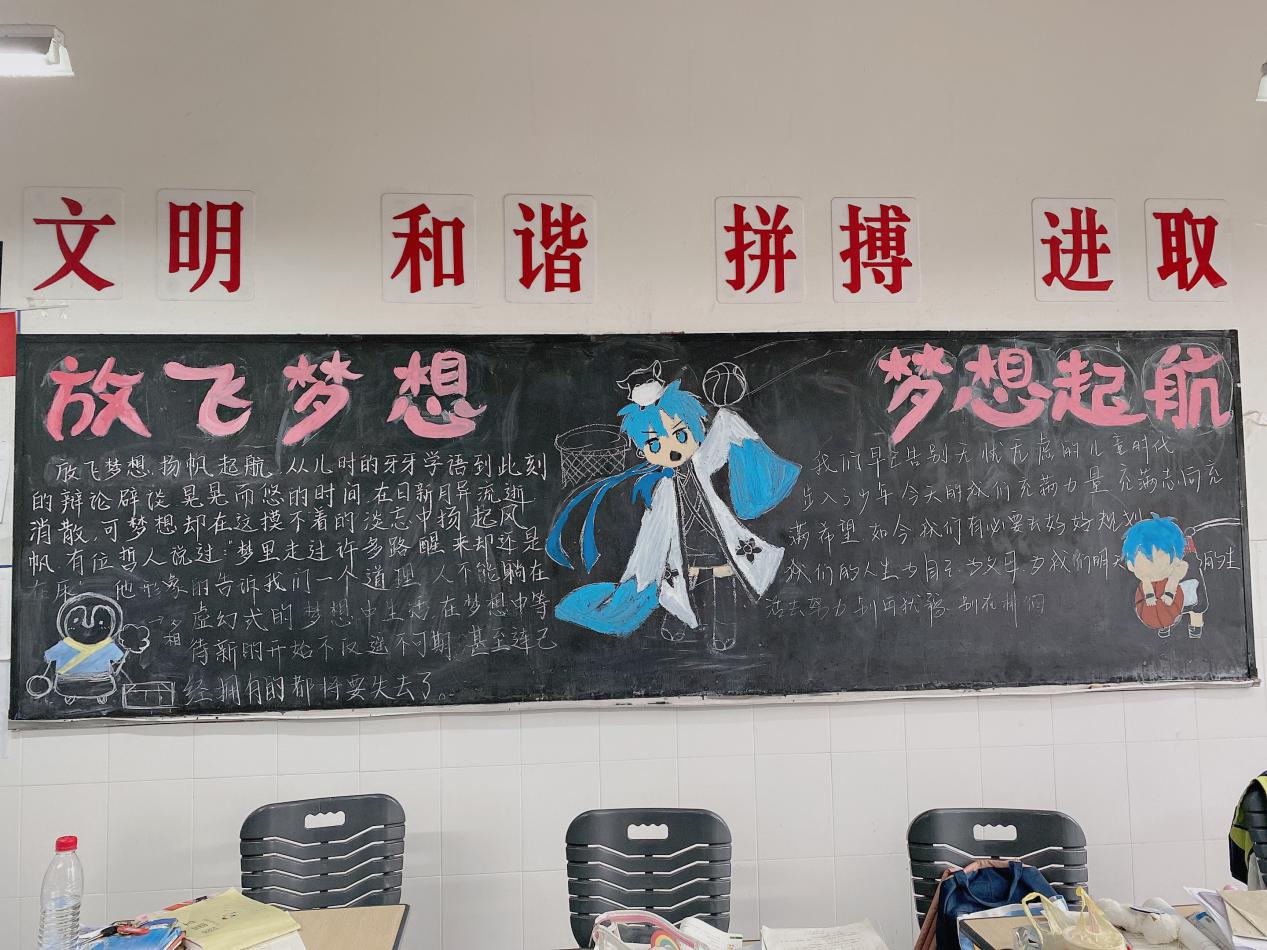 文明 和谐 拼搏 进取
放飞梦想
放飞梦想，扬帆起航，从儿时的牙牙学语到此刻
的辩论辟谈，晃晃而悠的时间，在日新月异流逝
消散，可梦想却在这摸不着的淡志中扬起风
帆，有位哲人说过：“梦里走过许多路，醒来却还是
在床 他形象的告诉我们一个道理，人不能躺在
虚幻式的梦想中生活，在梦想中等
待新的开始不仅遥不可期，甚至连己
经拥有的都将要失去了。
梦想起航
我们早已告别无忧无虑的儿童时代
步入了少年 今天的我们充满力量 充满志向充
满希望 如今我们有必要去好好规划
我们的人生 为自己 为父母 为我们明天
努力 别再犹豫 别在徘徊